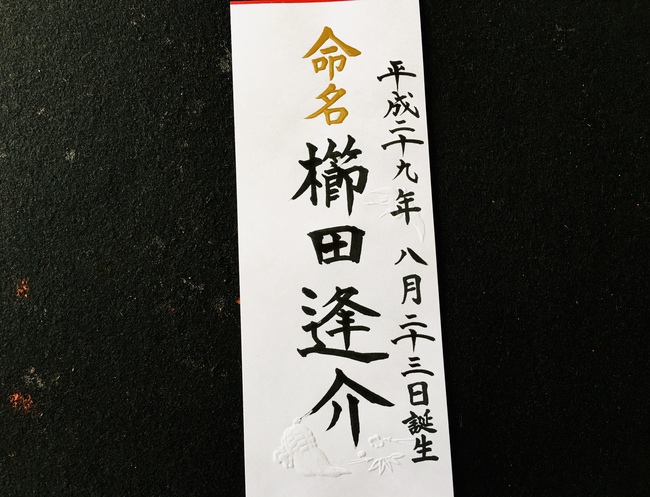 平成二十九年 八月二十三日誕生
命名 櫛田逢介